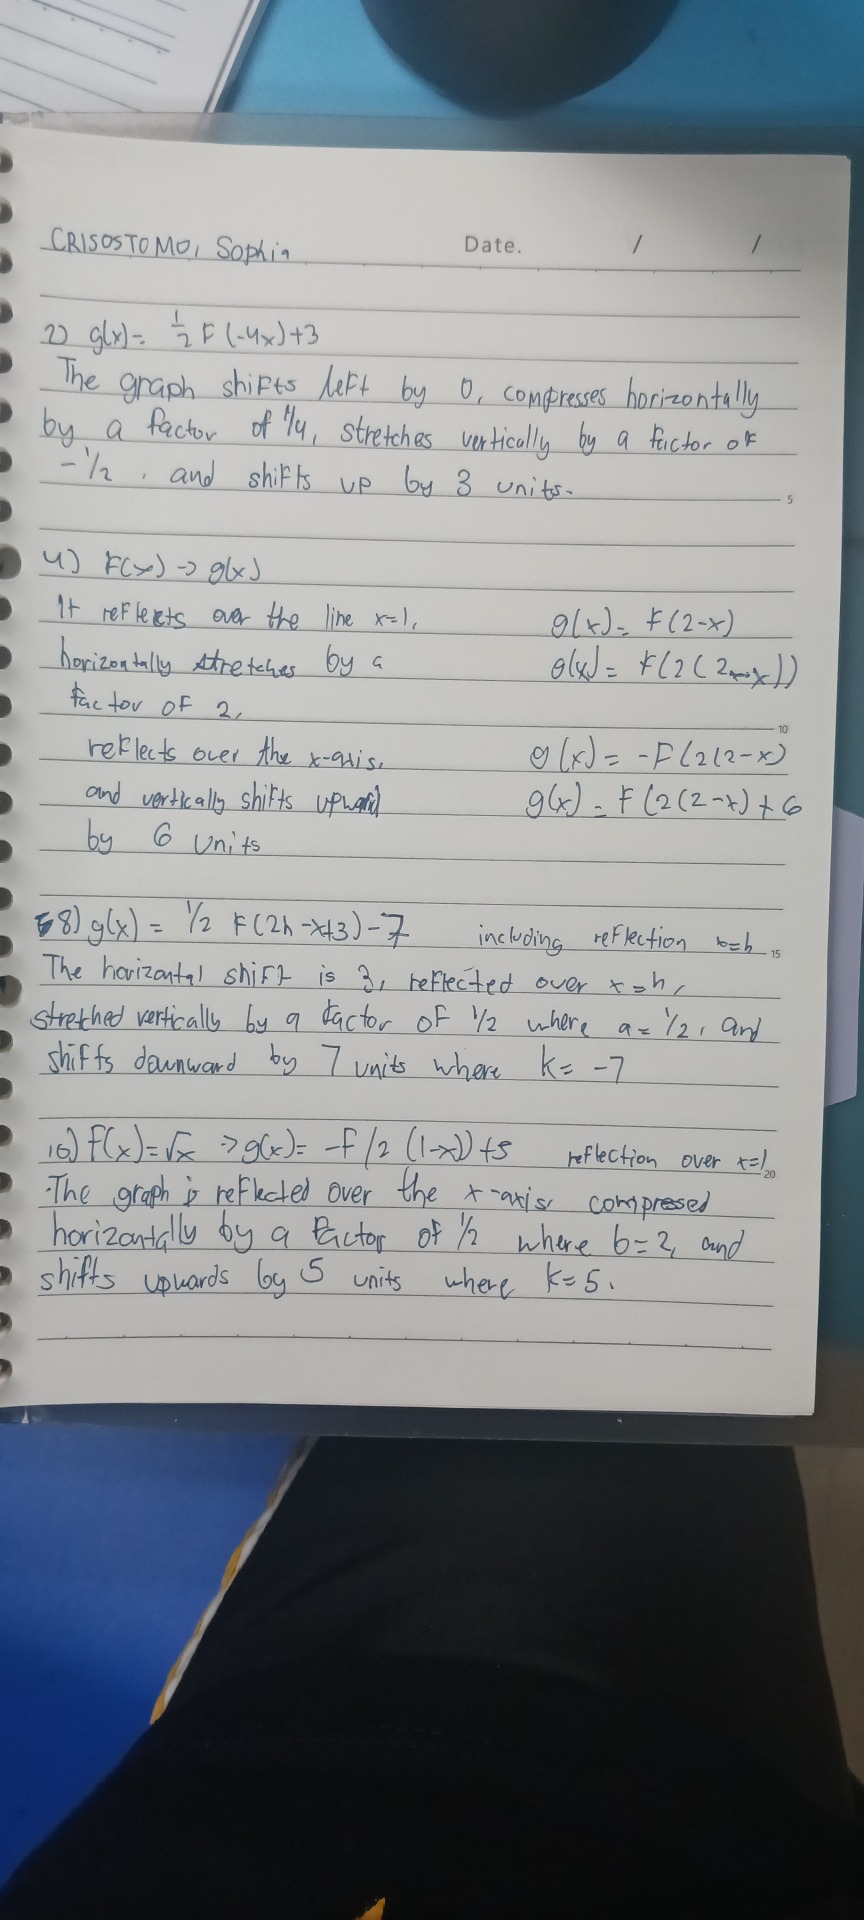 CRISOSTOMO, Sophia
Date. / /
2) g(x) = 1/2 F(-4x)+3
The graph shifts left by 0, compresses horizontally
by a factor of 1/4, stretches vertically by a factor of
-1/2, and shifts up by 3 units.
5
4) F(x) → g(x)
It reflects over the line x=1, g(x) = F(2-x)
horizontally stretches by a g(x) = F(2(2-x))
factor of 2,
10
reflects over the x-axis, g(x) = -F(2(2-x)
and vertically shifts upward g(x) = F(2(2-x)+6
by 6 units
8) g(x) = 1/2 F(2h-x+3)-7 including reflection x=h
15
The horizontal shift is 3, reflected over x=h,
stretched vertically by a factor of 1/2 where a=1/2, and
shifts downward by 7 units where k= -7
10) f(x)=√x → g(x)= -f/2 (1-x))+5 reflection over x=1
20
The graph is reflected over the x-axis, compressed
horizontally by a factor of 1/2 where b=2, and
shifts upwards by 5 units where k=5.